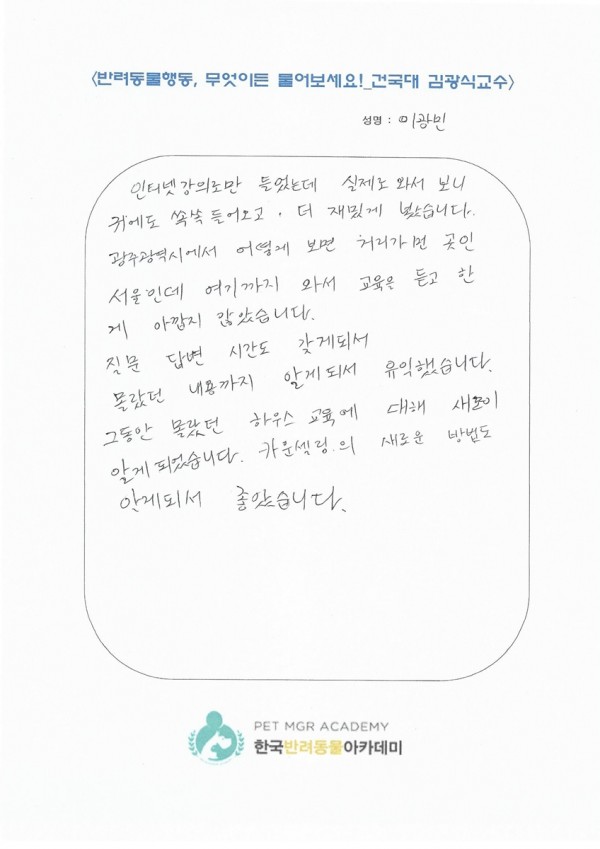 <반려동물행동, 무엇이든 물어보세요!_건국대 김광식교수>
성명 : 이광민
인터넷강의로만 들었는데 실제로 와서 보니
귀에도 쏙쏙 들어오고. 더 재밌게 봤습니다.
광주광역시에서 어떻게 보면 거리가 먼 곳인
서울인데 여기까지 와서 교육을 듣고 한
게 아깝지 않았습니다.
질문 답변 시간도 갖게되서
몰랐던 내용까지 알게되서 유익했습니다.
그동안 몰랐던 하우스 교육에 대해 새로이
알게되었습니다. 카운셀링의 새로운 방법도
알게되서 좋았습니다.
PET MGR ACADEMY
한국반려동물아카데미